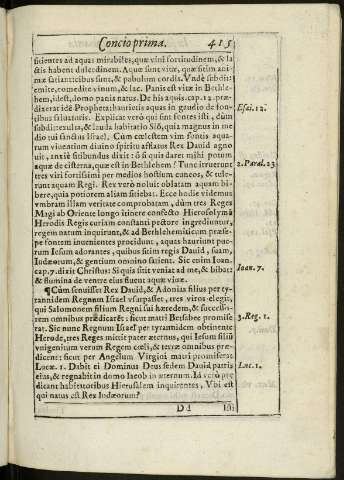 Concio prima. 415
sicientes ad aquas mirabiles, quæ vini fortitudinem, & la
ctis habent dulcedinem. Aquæ sunt vitæ, quæ sitim ani
mæ satiantibus sunt, & pabulum cordis. Vnde
emite, comedite vinum, & lac. Panis est vitæ in Bethle-
hem, idest, domo panis natus. De his aquis. cap. 12. præ-
dixerat idē Propheta: haurietis aquas in gaudio de fon-
tibus saluatoris. Explicat verò qui sint fontes isti, dùm
subdit: exulta, & lauda habitatio Siō, quia magnus in me
dio tui sanctus Israel. Cùm cælestem vim fontis aqua-
rum viuentium diuino spiritu afflatus Rex Dauid agno
uit, anxiè sitibundus dixit: ô si quis daret mihi potum
aquæ de cisterna, quæ est in Bethlehem? Tunc irruerunt
tres viri fortissimi per medios hostium cuneos, & tule-
runt aquam Regi. Rex verò noluit oblatam aquam bi-
bere, quia potiorem aliam sitiebat. Ecce hodie videmus
vmbram illam veritate comprobatam, dùm tres Reges
Magi ab Oriente longo itinere confecto Hierosolymā
Herodis Regis curiam constanti pectore ingrediuntur,
regem natum inquirunt, & ad Bethlehemiticum præse-
pe fontem inuenientes procidunt, aquas hauriunt pue-
rum Iesum adorantes, quibus sitim regis Dauid, suam,
Iudæorum, & gentium omnino satient. Sic enim Ioan.
cap. 7. dixit Christus: Si quis sitit veniat ad me, & bibat:
& flumina de ventre eius fluent aquæ viuæ.
¶ Cùm senuisset Rex Dauid, & Adonias filius per ty-
rannidem Regnum Israel vsurpasset, tres viros elegit,
qui Salomonem filium Regni sui hæredem, & successo-
rem omnibus prædicarēt: sicut matri Betsabee promise
rat. Sic nunc Regnum Israel per tyrannidem obtinente
Herode, tres Reges mittit pater æternus, qui Iesum filiū
vnigenitum verum Regem cœli, & terræ omnibus præ-
dicent: sicut per Angelum Virgini matri promiserat
Lucæ. 1. Dabit ei Dominus Deus sedem Dauid patris
eius, & regnabit in domo Iacob in æternum. Id verò præ
dicant habitatoribus Hierusalem inquirentes, Vbi est
qui natus est Rex Iudæorum?
Dd
Esai. 12.
2. Paral. 23
Ioan. 7.
3. Reg. 1.
Luc. 1.